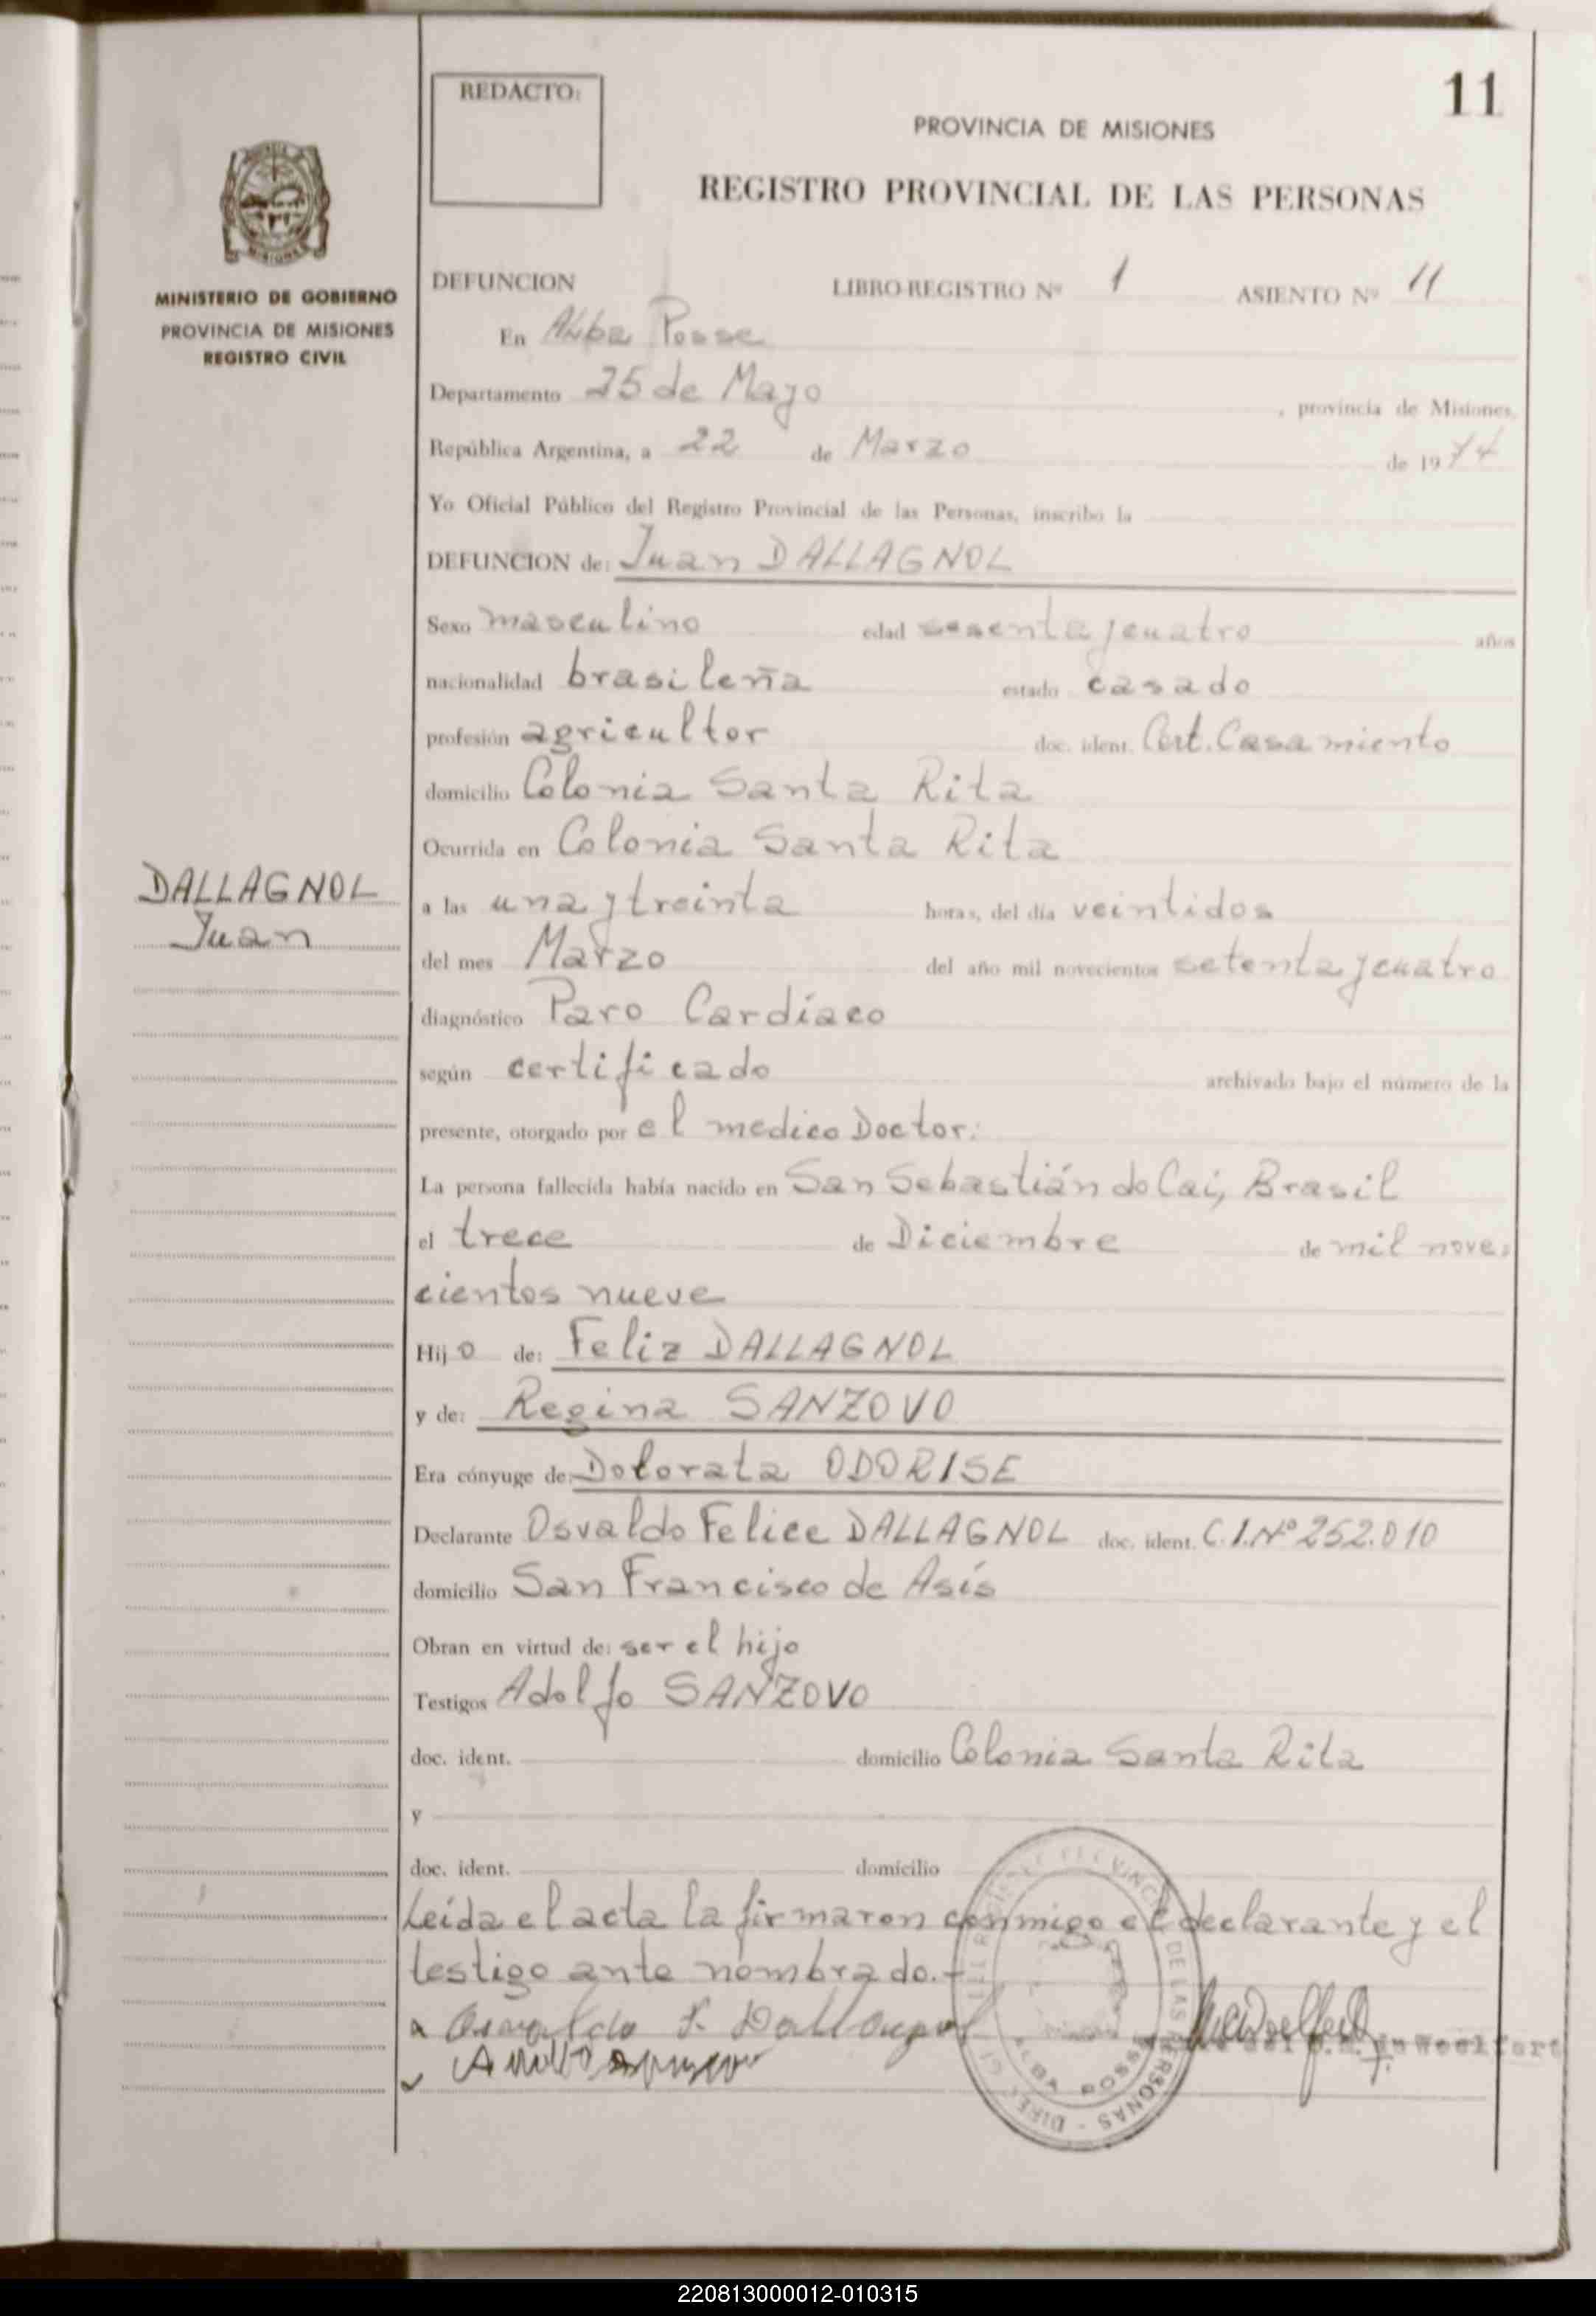 11
REDACTO:
PROVINCIA DE MISIONES
REGISTRO PROVINCIAL DE LAS PERSONAS
MINISTERIO DE GOBIERNO
PROVINCIA DE MISIONES
REGISTRO CIVIL
DEFUNCION LIBRO-REGISTRO Nº 1 ASIENTO Nº 11
En Alba Posse
Departamento 25 de Mayo, provincia de Misiones,
República Argentina, a 22 de Marzo de 1974
Yo Oficial Público del Registro Provincial de las Personas, inscribo la
DEFUNCION de: Juan DALLAGNOL
Sexo masculino edad sesenta y cuatro años
nacionalidad brasileña estado casado
profesión agricultor doc. ident. Cert. Casamiento
domicilio Colonia Santa Rita
Ocurrida en Colonia Santa Rita
DALLAGNOL
Juan
a las una y treinta horas, del día veintidos
del mes Marzo del año mil novecientos setenta y cuatro
diagnóstico Paro Cardíaco
según certificado archivado bajo el número de la
presente, otorgado por el medico Doctor:
La persona fallecida había nacido en San Sebastián do Cai, Brasil
el trece de Diciembre de mil nove-
cientos nueve
Hijo de: Feliz DALLAGNOL
y de: Regina SANZOVO
Era cónyuge de: Dolorata ODORISE
Declarante Osvaldo Felice DALLAGNOL doc. ident. C.I.Nº 252.010
domicilio San Francisco de Asís
Obran en virtud de: ser el hijo
Testigos Adolfo SANZOVO
doc. ident. domicilio Colonia Santa Rita
y
doc. ident. domicilio
Leída el acta la firmaron conmigo el declarante y el
testigo ante nombrado.-
Osvaldo F. Dallagnol
ALBA POSSE
DE LAS PERSONAS
220813000012-010315